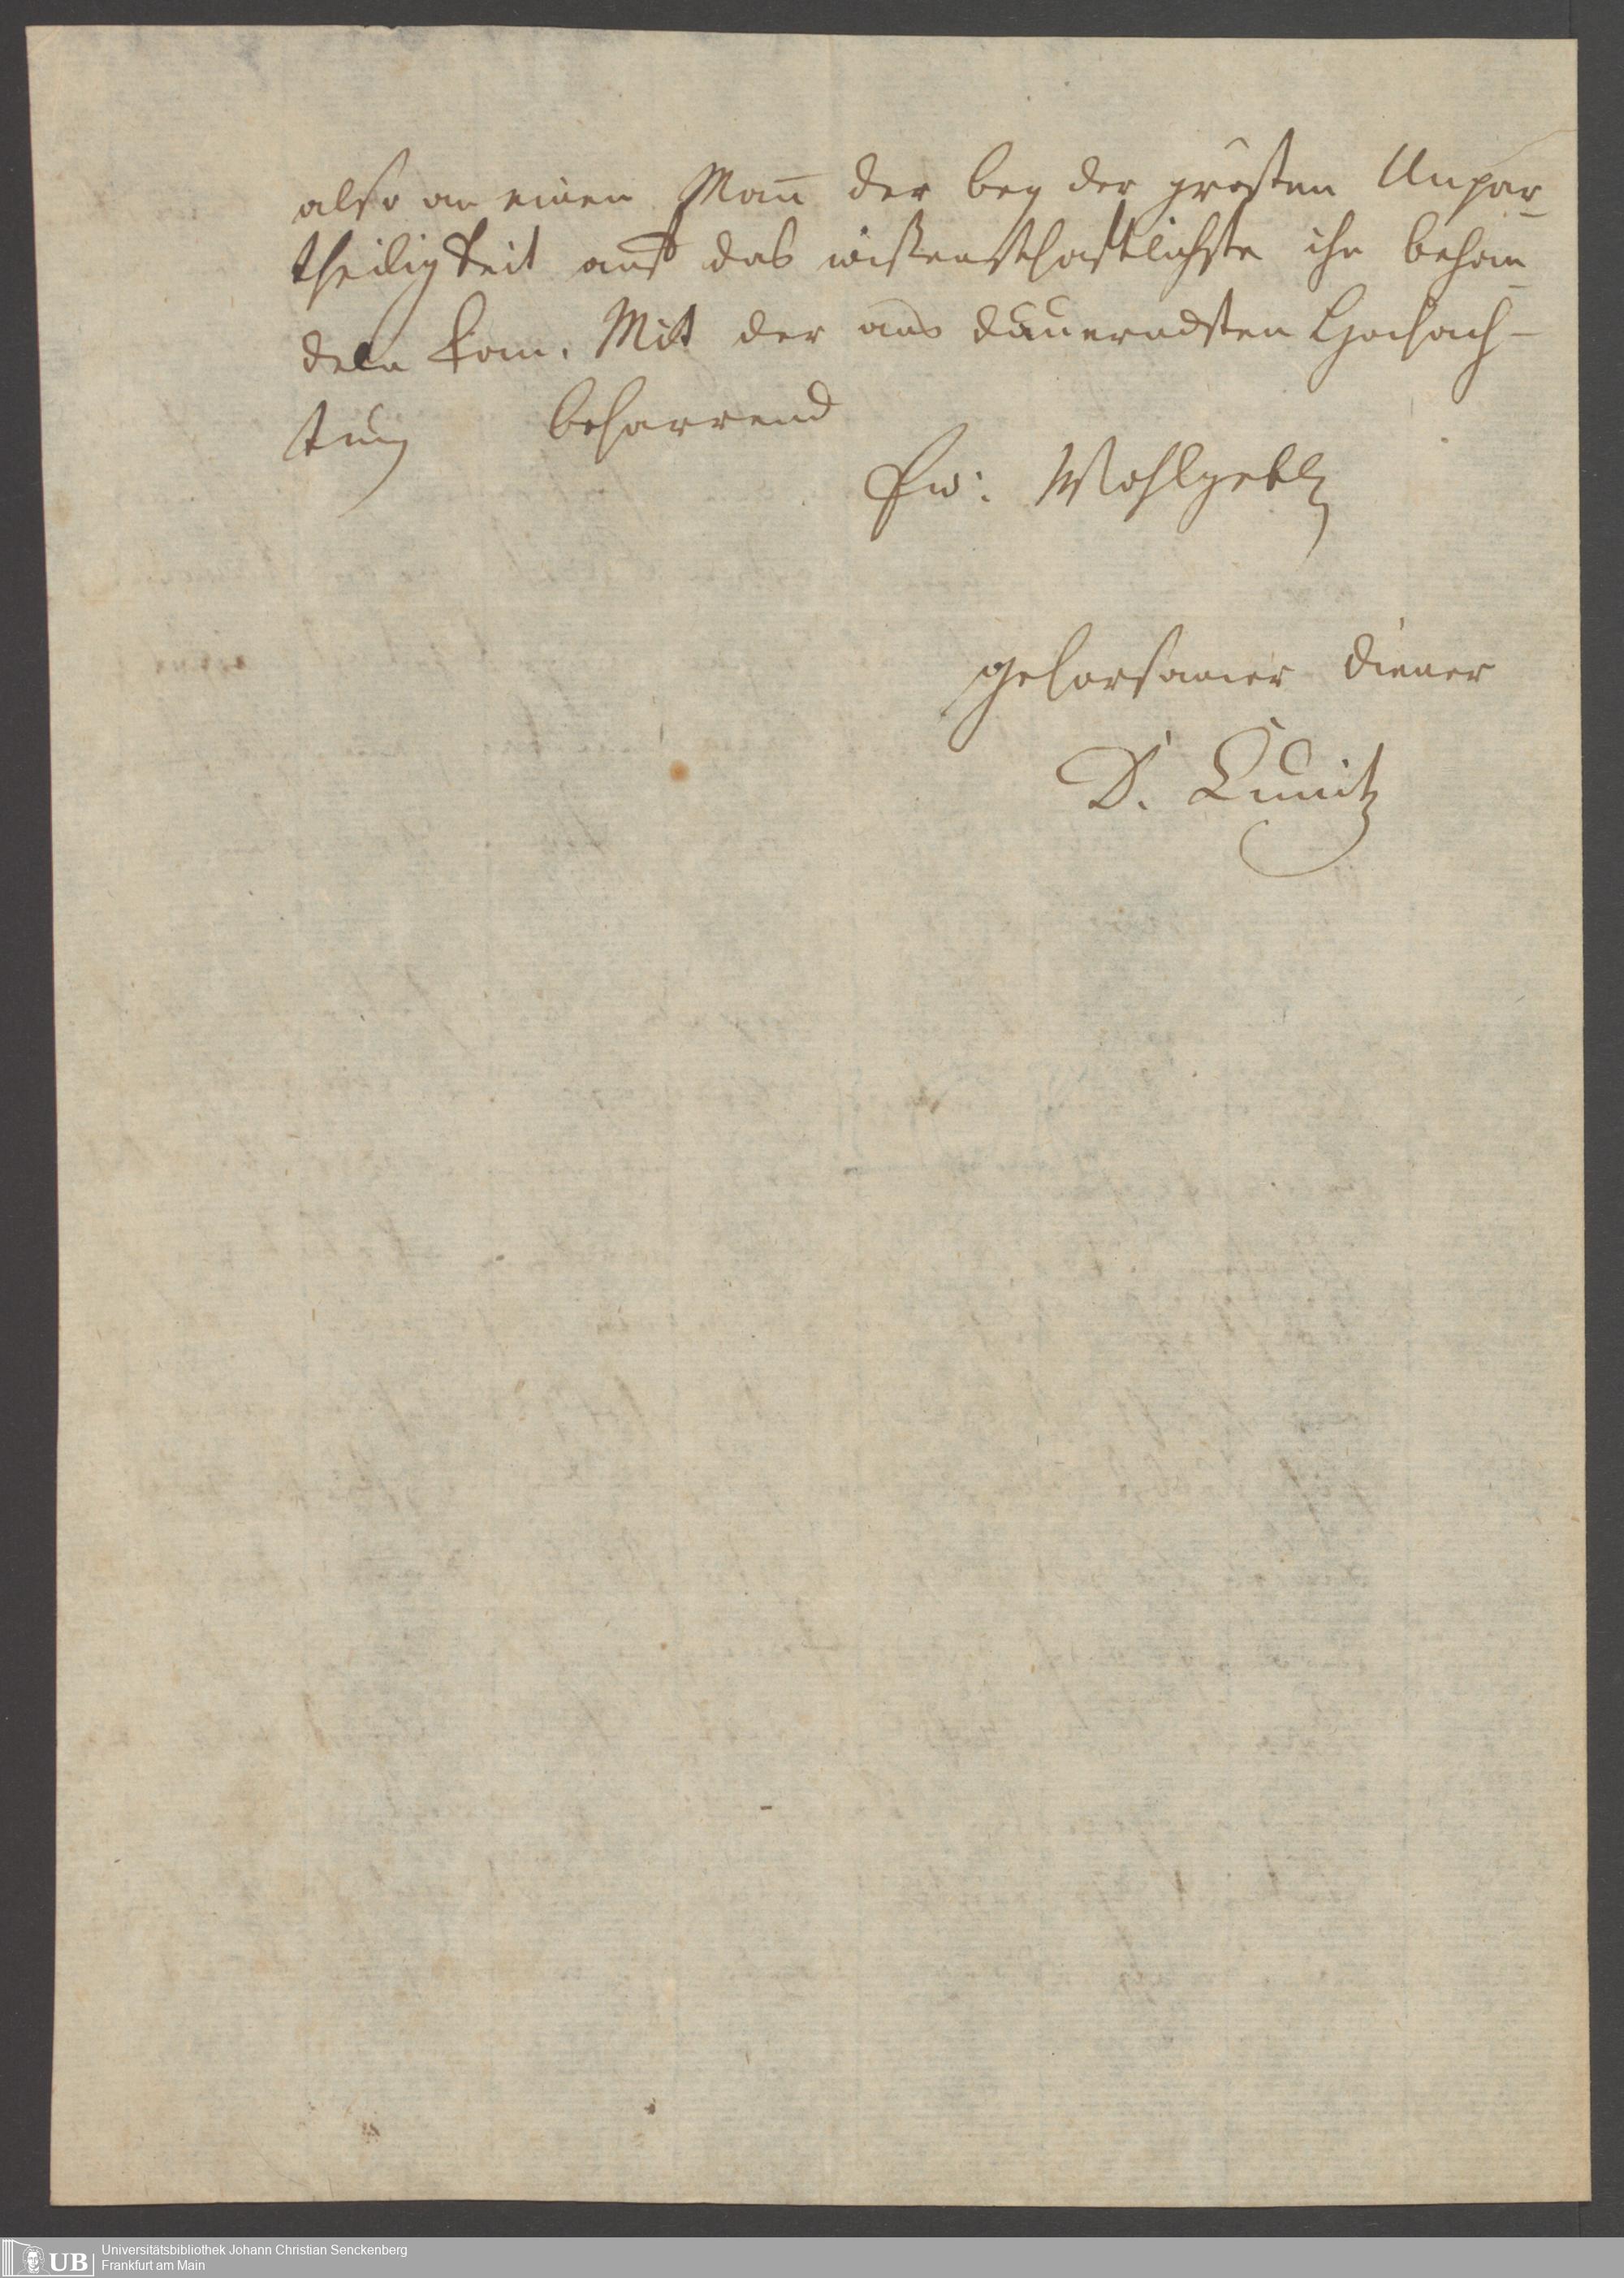 also an einen Man̄ der bey der grösten Unpar-
theiligkeit auf das wißenschaftlichste ihn behan-
deln kan. Mit der aus dauerndsten Hochach-
tung beharrend
Ew: Wohlgebl
gehorsamer Diener
D. Kunitz
Universitätsbibliothek Johann Christian Senckenberg
Frankfurt am Main
UB